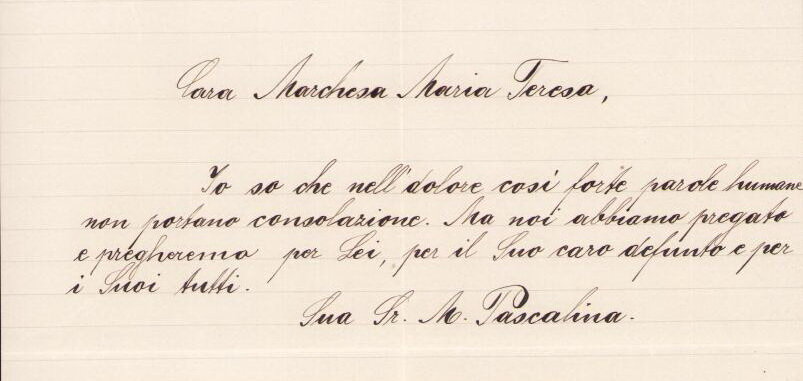 Cara Marchesa Maria Teresa,
Io so che nell'dolore così forte parole humane
non portano consolazione. Ma noi abbiamo pregato
e pregheremo per Lei, per il Suo caro defunto e per
i Suoi tutti.
Sua Sr. M. Pascalina.